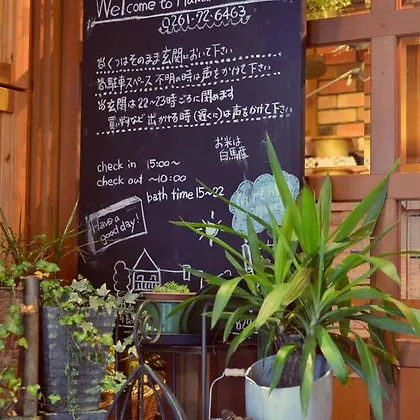 Welcome to
0261-72-6463
くつはそのまま玄関において下さい
駐車スペース不明の時は声をかけて下さい
玄関は22~23時ごろに閉めます
買物など出かける時(遅くに)は声をかけて下さい
お米は
白馬産
check in 15:00~
check out ~10:00
bath time 15~22
Have a
good day!